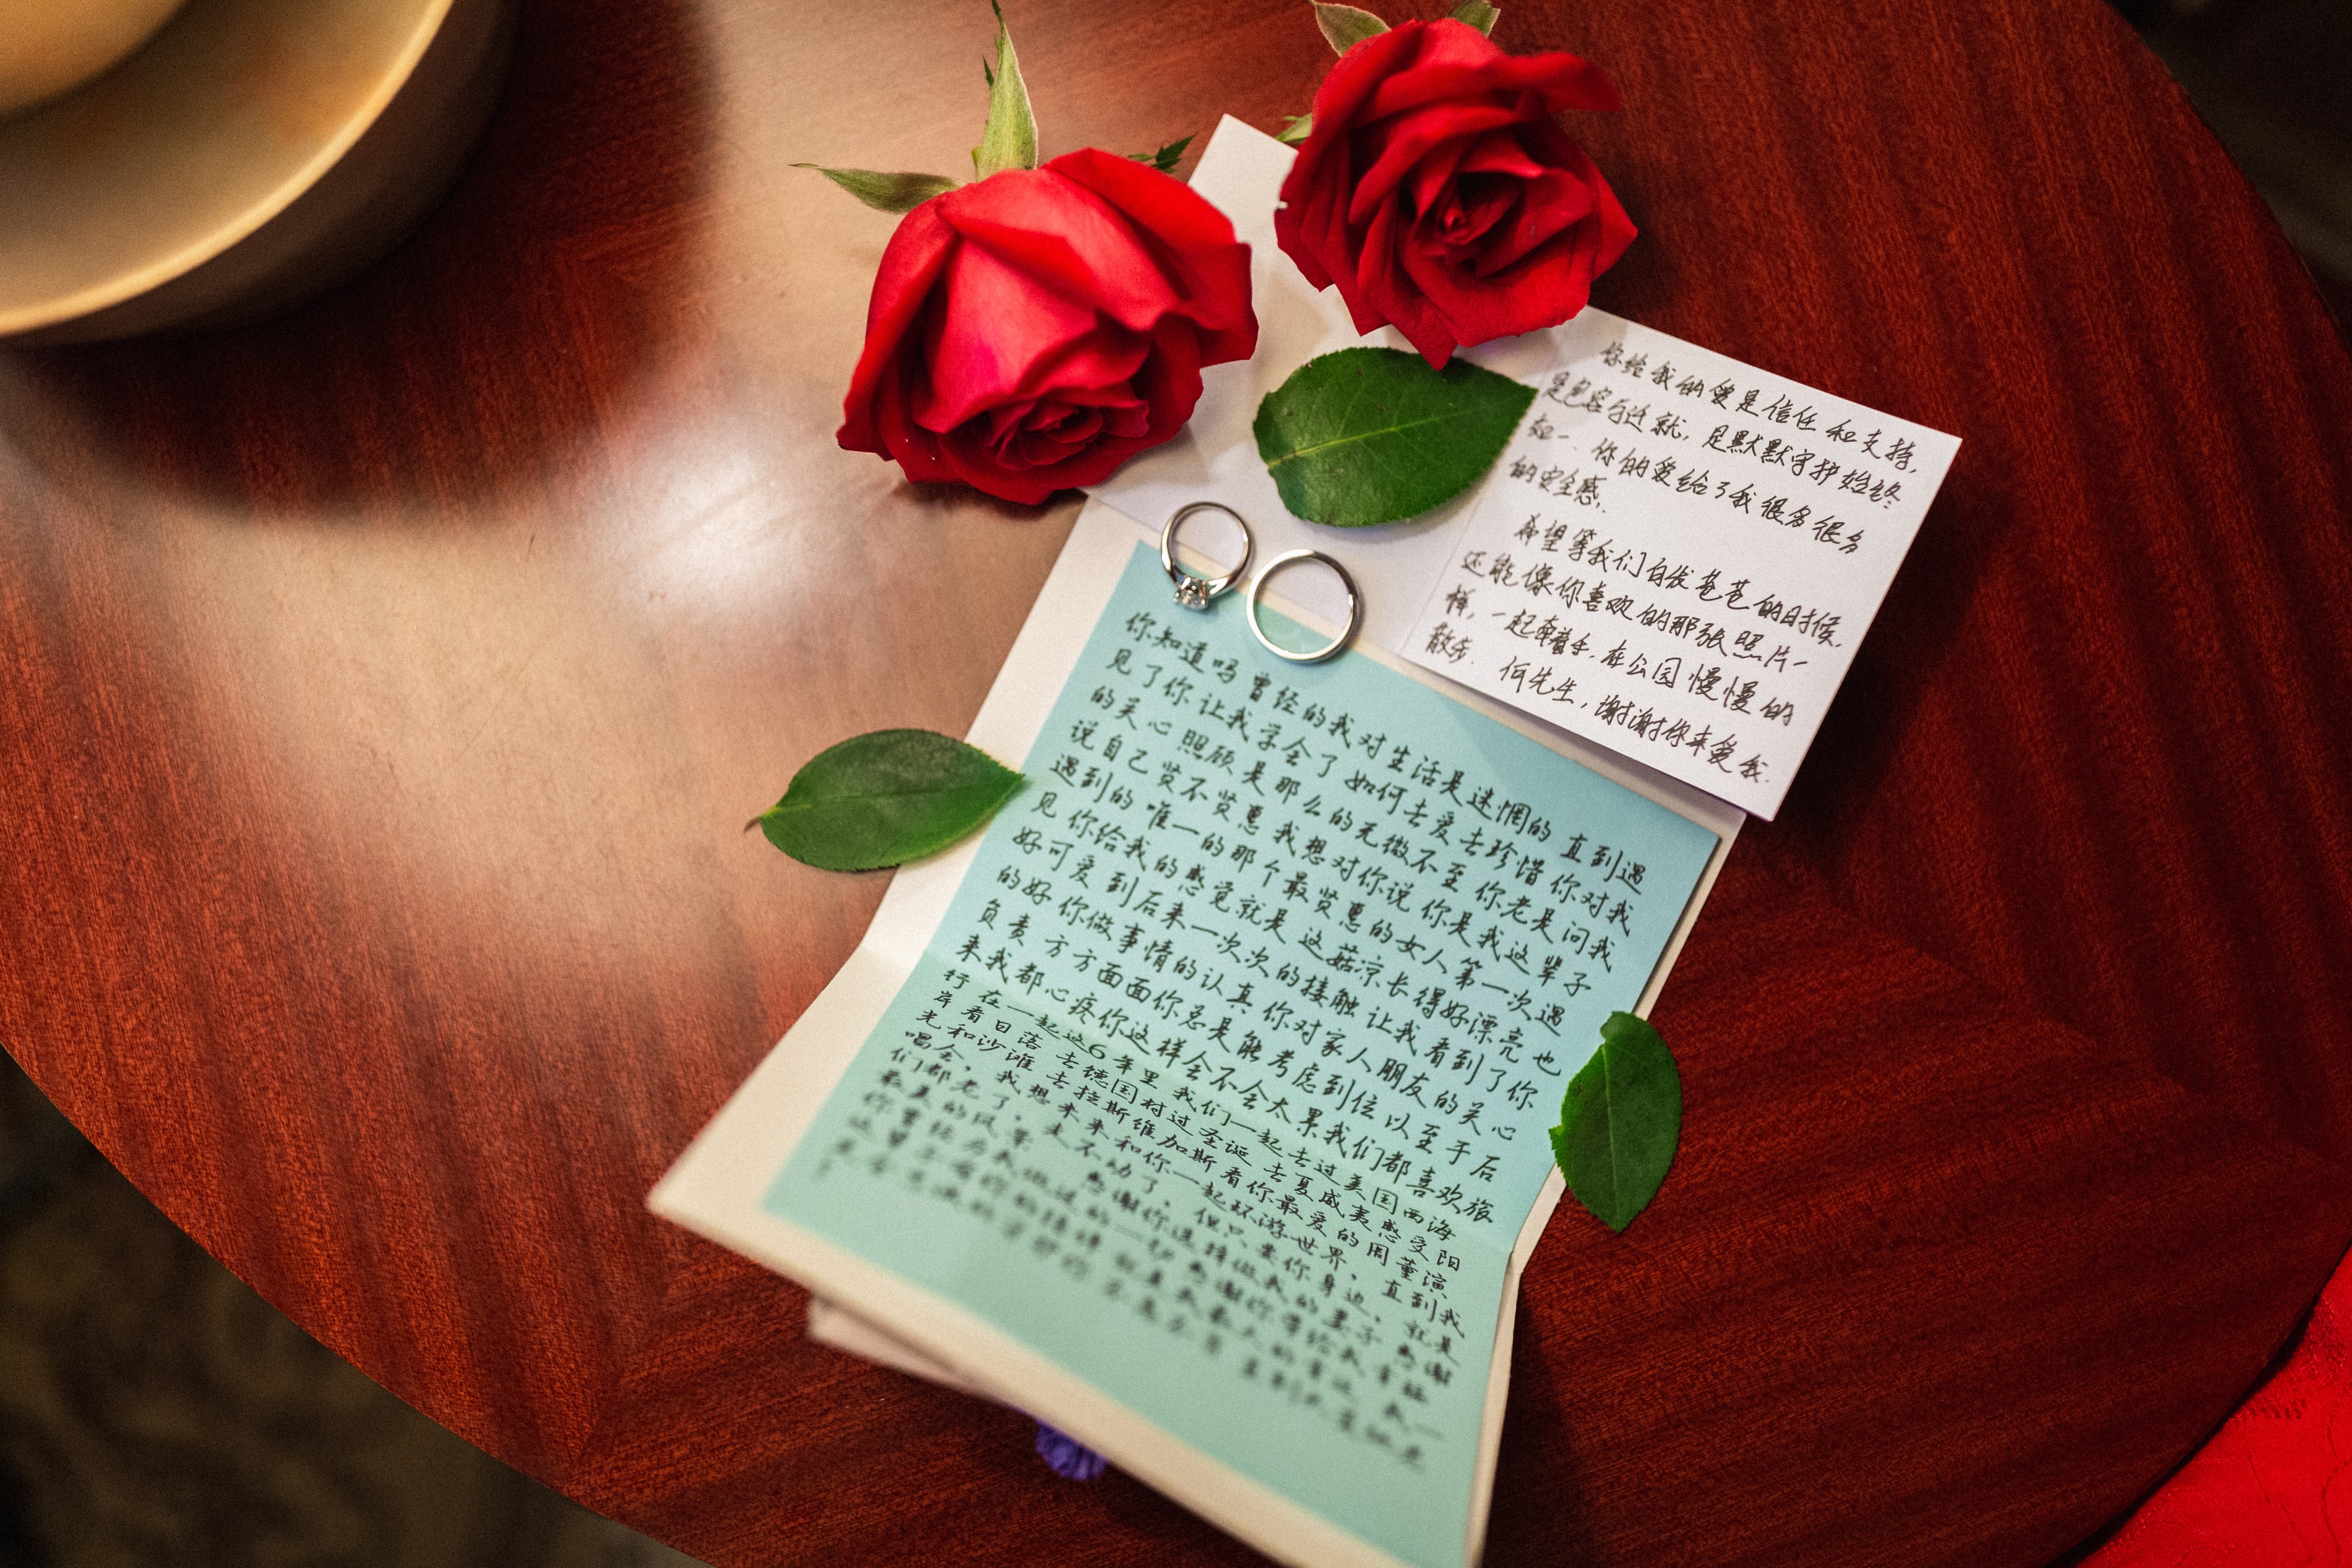 你给我的爱是信任和支持,
是包容与迁就,是默默守护始终
如一.你的爱给了我很多很多
的安全感.
希望等我们白发苍苍的时候,
还能像你喜欢的那张照片一
样,一起牵着手,在公园慢慢的
散步.何先生,谢谢你来爱我.
你知道吗曾经的我对生活是迷惘的 直到遇
见了你 让我学会了如何去爱去珍惜 你对我
的关心 照顾 是那么的无微不至 你老是问我
说自己贤不贤惠 我想对你说 你是我这辈子
遇到的 唯一的那个最贤惠的女人 第一次遇
见 你给我的感觉就是 这菇凉长得好漂亮 也
好可爱 到后来一次次的接触 让我看到了你
的好 你做事情的认真 你对家人朋友的关心
负责 方方面面你总是能考虑到位 以至于后
来我都心疼你这样会不会太累 我们都喜欢旅
行 在一起这6年里 我们一起去过美国西海
岸看日落 去德国村过圣诞 去夏威夷感受阳
光和沙滩 去拉斯维加斯看你最爱的周董演
唱会, 我想未来和你一起环游世界, 直到我
们都老了, 走不动了, 但只要你身边, 就是
最美的风景 感谢你选择做我的妻子 感谢
你曾经为我做过的一切 感谢你